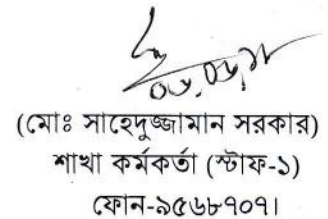 (মোঃ সাহেদুজ্জামান সরকার)
শাখা কর্মকর্তা (স্টাফ-১)
ফোন-৯৫৬৮৭০৭১।